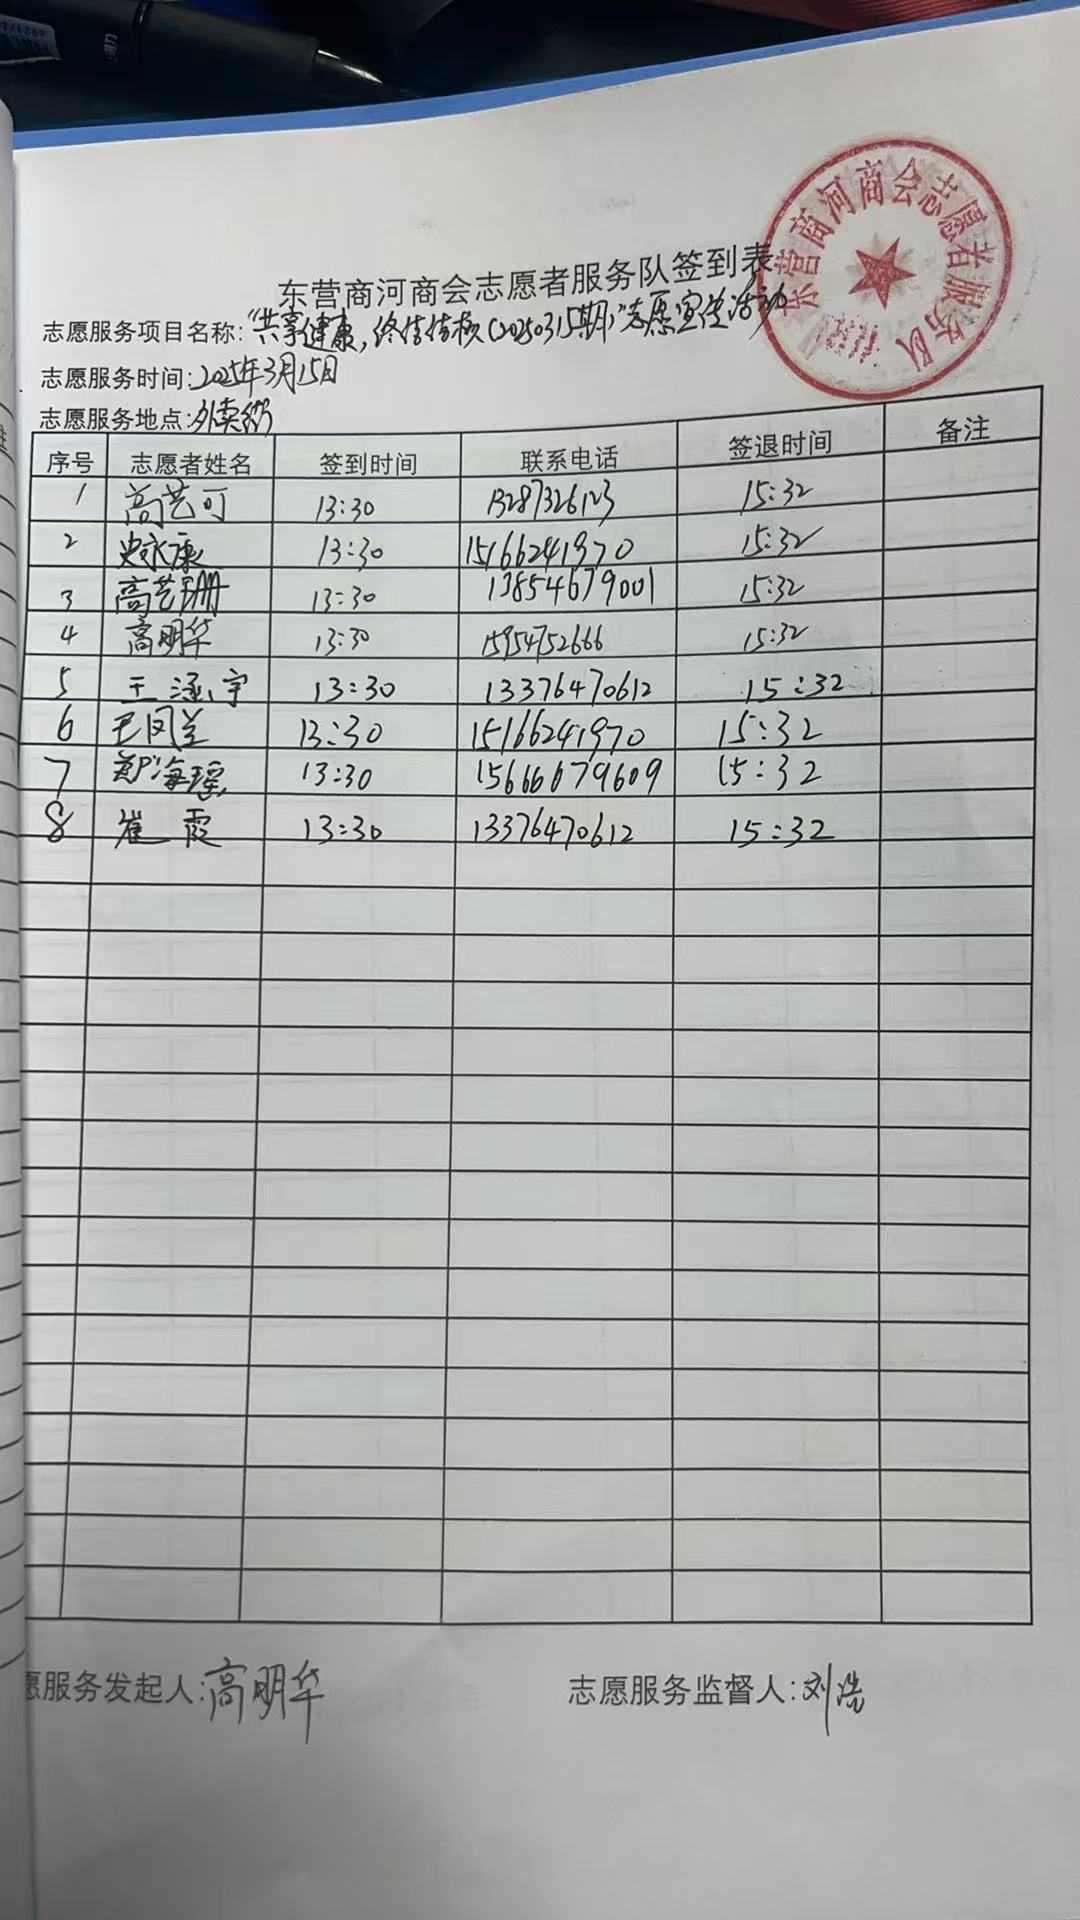 东营商河商会志愿者服务队
东营商河商会志愿者服务队签到表
志愿服务项目名称:“共享健康,终结结核(20250315期)”志愿宣传活动
志愿服务时间:2025年3月15日
志愿服务地点:外卖街
序号 志愿者姓名 签到时间 联系电话 签退时间 备注
1 高艺可 13:30 13287326123 15:32
2 史永康 13:30 15166241970 15:32
3 高艺珊 13:30 13854679001 15:32
4 高明华 13:30 15954752666 15:32
5 王涵宇 13:30 13376470612 15:32
6 王凤兰 13:30 15166241970 15:32
7 郑海瑶 13:30 15666679609 15:32
8 崔霞 13:30 13376470612 15:32
愿服务发起人:高明华 志愿服务监督人:刘浩